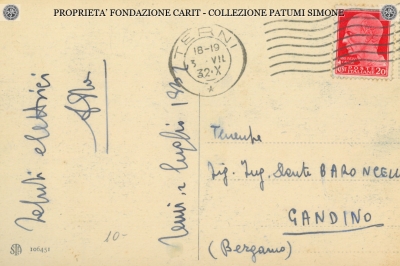 PROPRIETA' FONDAZIONE CARIT - COLLEZIONE PATUMI SIMONE
TERNI
18-19
3 · VII
32·X
Saluti elettrici
Terni, 2 luglio 1932
Tenente
Sig. Ing. Dante BARONCELLI
GANDINO
(Bergamo)
10-
106451